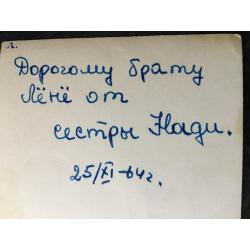 л.
Дорогому брату
Лёнё от
сестры Нади.
25/XI-64г.